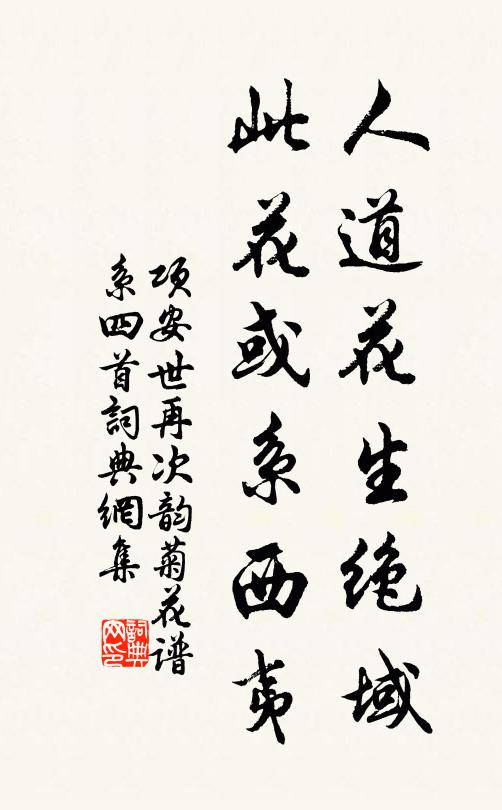 人道花生绝域
此花或系西夷
项安世再次韵菊花谱
系四首詞典網集
詞典
网印